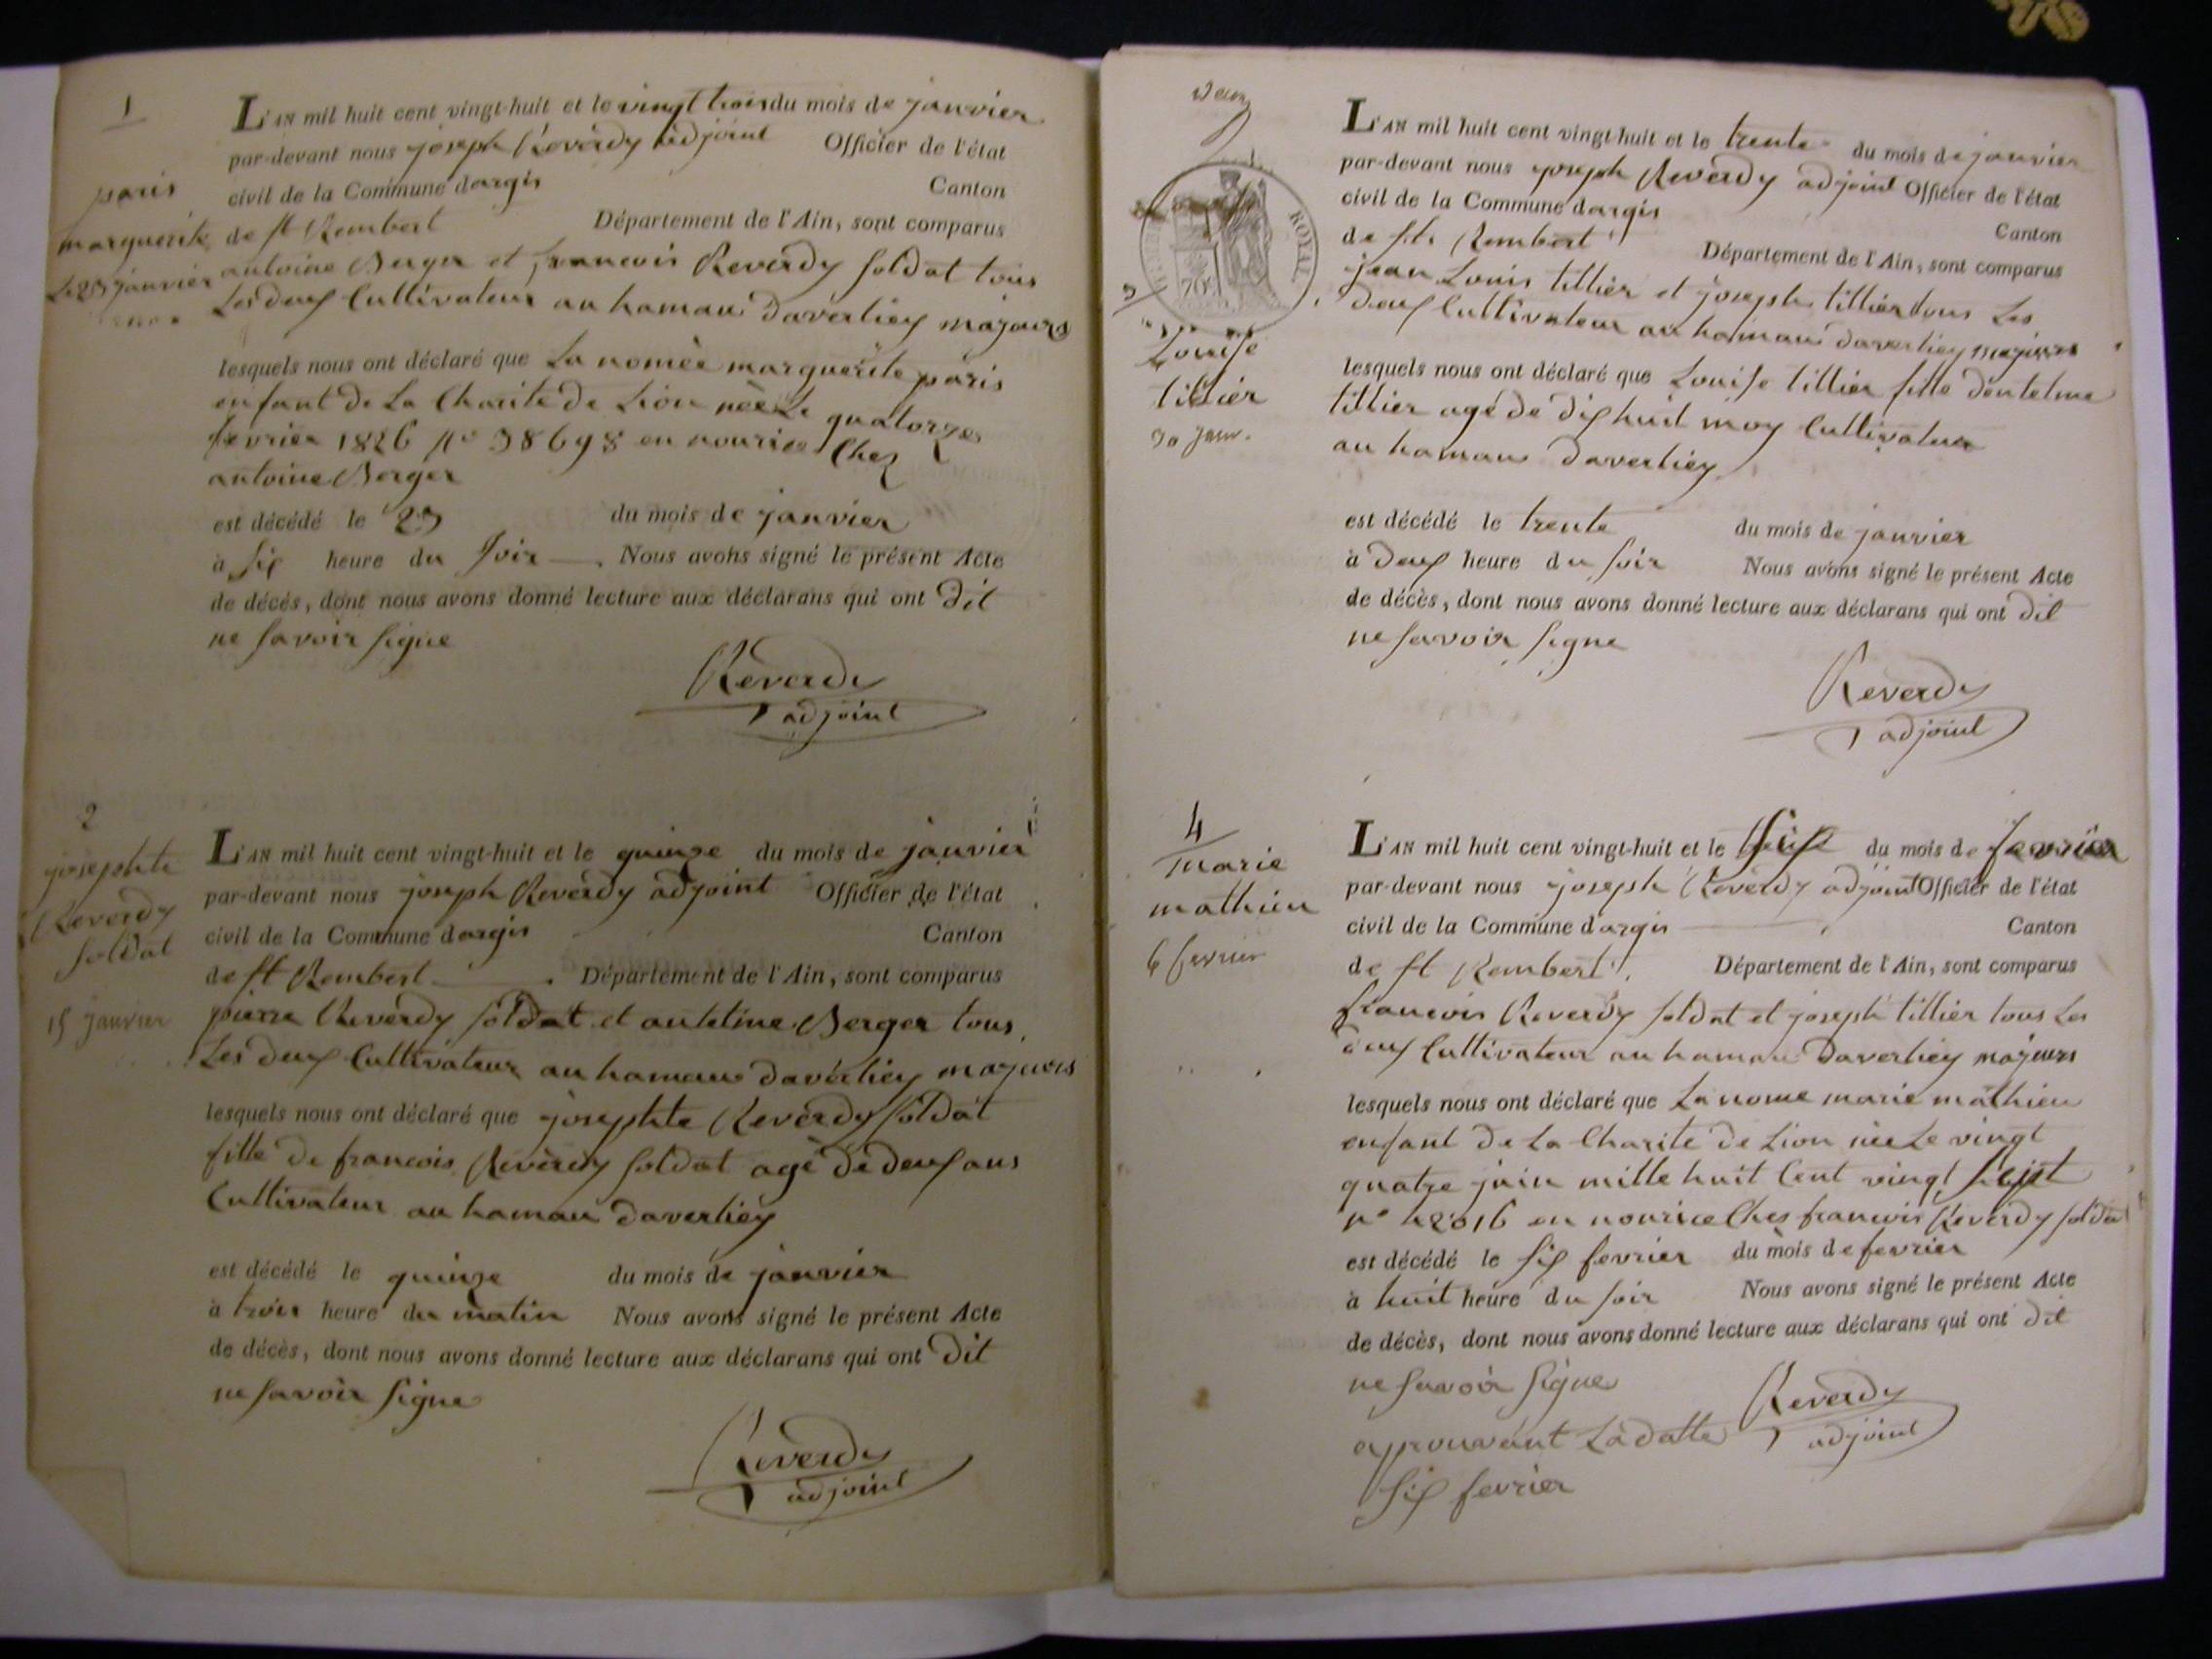 1
paris
marguerite
Le 23 janvier
L'AN mil huit cent vingt-huit et le vingt trois du mois de janvier
par-devant nous joseph Reverdy adjoint Officier de l'état
civil de la Commune dargis Canton
de st Rembert Département de l'Ain, sont comparus
antoine Berger et francois Reverdy soldat tous
Les deux Cultivateur au hamau daverliey majeurs
lesquels nous ont déclaré que La nomèe marguerite paris
enfant de La Charite de Lion nèe Le quatorze
fevrier 1826 no 38698 en nourice Chez
antoine Berger
est décédé le 23 du mois de janvier
à six heure du soir. Nous avons signé le présent Acte
de décès, dont nous avons donné lecture aux déclarans qui ont dit
ne savoir signe
Reverdy
adjoint
2
josephte
Reverdy
soldat
15 janvier
L'AN mil huit cent vingt-huit et le quinze du mois de janvier
par-devant nous joseph Reverdy adjoint Officier de l'état
civil de la Commune dargis Canton
de st Rembert Département de l'Ain, sont comparus
pierre Reverdy soldat et antelme Berger tous
Les deux Cultivateur au hamau daverliey majeurs
lesquels nous ont déclaré que josephte Reverdy soldat
fille de francois Reverdy soldat agé de deux ans
Cultivateur au hamau daverliey
est décédé le quinze du mois de janvier
à trois heure du matin Nous avons signé le présent Acte
de décès, dont nous avons donné lecture aux déclarans qui ont dit
ne savoir signe
Reverdy
adjoint
ROYAL
70c
3
Louise
tillier
30 janv.
L'AN mil huit cent vingt-huit et le trente du mois de janvier
par-devant nous joseph Reverdy adjoint Officier de l'état
civil de la Commune dargis
Canton
de st. Rembert Département de l'Ain, sont comparus
jean Louis tillier et joseph tillier tous Les
deux Cultivateur au hamau daverliey majeurs
lesquels nous ont déclaré que Louise tillier fille dentelme
tillier agé de dix huit moy Cultivateur
au hamau daverliey
est décédé le trente du mois de janvier
à deux heure du soir Nous avons signé le présent Acte
de décès, dont nous avons donné lecture aux déclarans qui ont dit
ne savoir signe
Reverdy
adjoint
4
marie
mathieu
6 fevrier
L'AN mil huit cent vingt-huit et le six du mois de fevrier
par-devant nous joseph Reverdy adjoint Officier de l'état
civil de la Commune dargis Canton
de st Rembert Département de l'Ain, sont comparus
francois Reverdy soldat et joseph tillier tous Les
deux Cultivateur au hamau daverliey majeurs
lesquels nous ont déclaré que La nome marie mathieu
enfant de La Charite de Lion nèe Le vingt
quatre juin mille huit Cent vingt sept
no 42016 en nourice Ches francois Reverdy soldat
est décédé le six fevrier du mois de fevrier
à huit heure du soir Nous avons signé le présent Acte
de décès, dont nous avons donné lecture aux déclarans qui ont dit
ne savoir signe
Reverdy
adjoint
aprouvant La datte
six fevrier